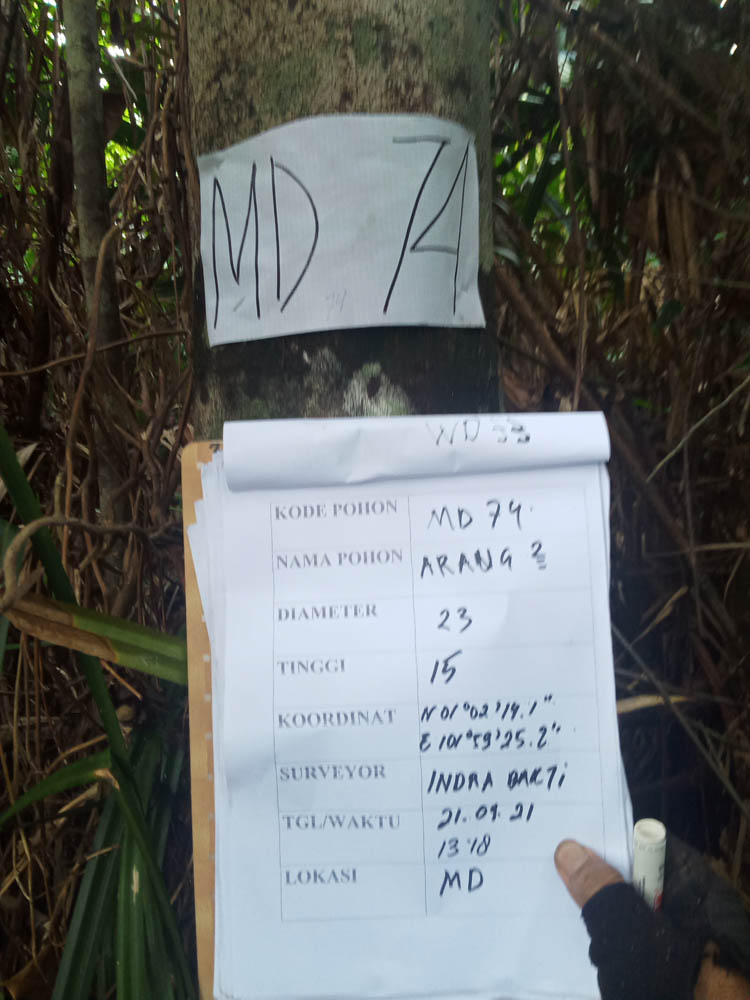 MD 74
WD 33
KODE POHON MD 74.
NAMA POHON ARANG 2
DIAMETER 23
TINGGI 15
KOORDINAT N 01°02'14.1"
E 101°59'25.2"
SURVEYOR INDRA BAKTI
TGL/WAKTU 21.09.21
13:18
LOKASI MD